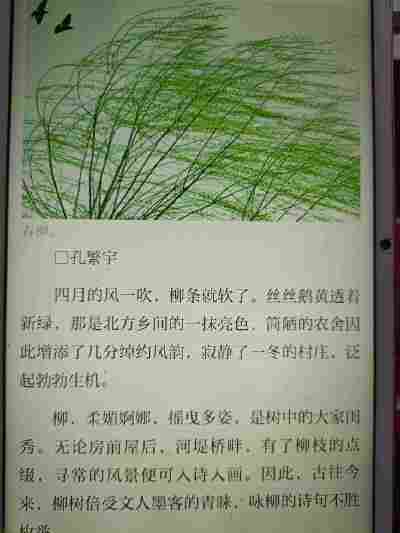 春柳。
□孔繁宇
四月的风一吹，柳条就软了。丝丝鹅黄透着
新绿，那是北方乡间的一抹亮色，简陋的农舍因
此增添了几分绰约风韵，寂静了一冬的村庄，泛
起勃勃生机。
柳，柔媚婀娜，摇曳多姿，是树中的大家闺
秀。无论房前屋后，河堤桥畔，有了柳枝的点
缀，寻常的风景便可入诗入画。因此，古往今
来，柳树倍受文人墨客的青睐，咏柳的诗句不胜
枚举